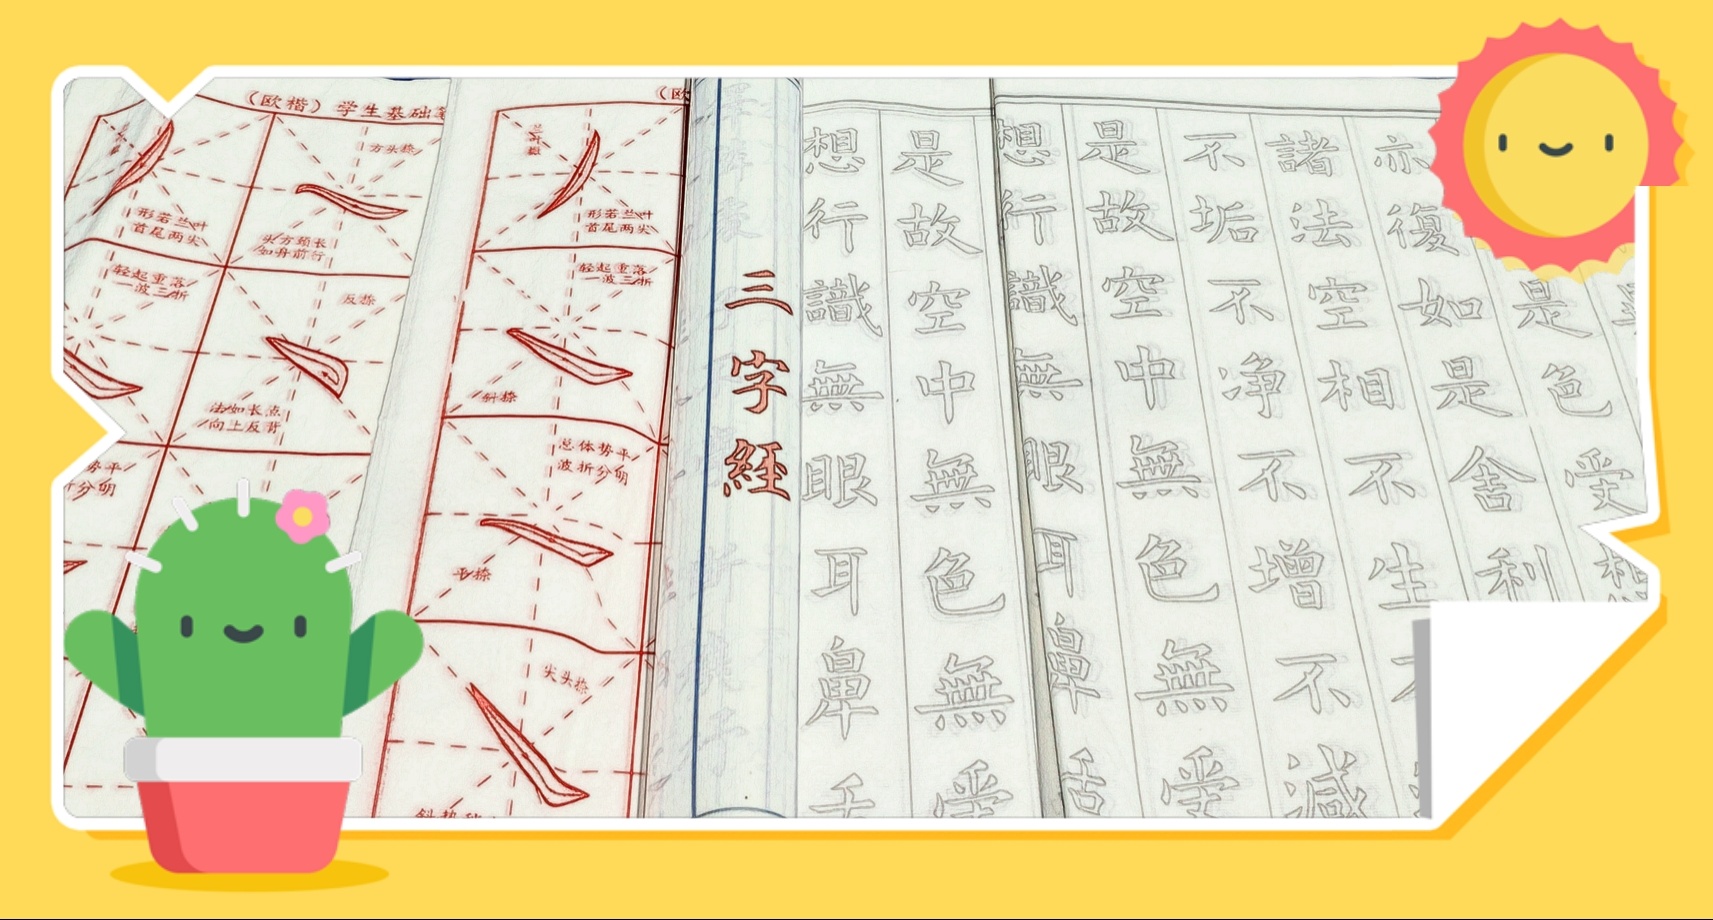 (欧楷)学生基础
方头捺
形若兰叶
首尾两尖
头方颈长
如舟前行
轻起重落
一波三折
反捺
法如长点
向上反背
势平
分明
(欧
兰叶撇
形若兰叶
首尾两尖
轻起重落
一波三折
斜捺
总体势平
波折分明
平捺
尖头捺
三字經
是故空中無色無受
想行識無眼耳鼻舌
亦復如是舍利
是色受想
諸法空相不生
不垢不净不增不減
是故空中無色無受
想行識無眼耳鼻舌